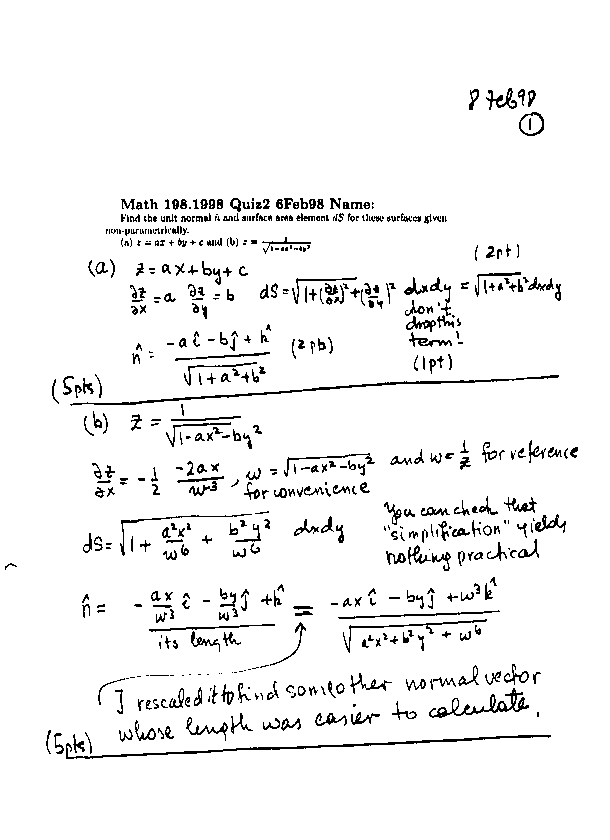 8 Feb 98
①
Math 198.1998 Quiz2 6Feb98 Name:
Find the unit normal n̂ and surface area element dS for these surfaces given
non-parametrically.
(a) z = ax + by + c and (b) z = 1/√(1-ax²-by²)
(2pt)
(a) z = ax + by + c
∂z/∂x = a ∂z/∂y = b dS = √(1+(∂z/∂x)²+(∂z/∂y)²) dxdy = √(1+a²+b²) dxdy
don't
drop this
term!
(1pt)
n̂ = (-aî - bĵ + k̂)/√(1+a²+b²) (2pts)
(5pts)
(b) z = 1/√(1-ax²-by²)
∂z/∂x = -1/2 (-2ax)/w³, w = √(1-ax²-by²) and w = 1/z for reference
for convenience
dS = √(1 + a²x²/w⁶ + b²y²/w⁶) dxdy
You can check that
"simplification" yields
nothing practical
n̂ = (-ax/w³ î - by/w³ ĵ + k̂)/its length = (-axî - byĵ + w³k̂)/√(a²x²+b²y²+w⁶)
I rescaled it to find some other normal vector
whose length was easier to calculate.
(5pts)